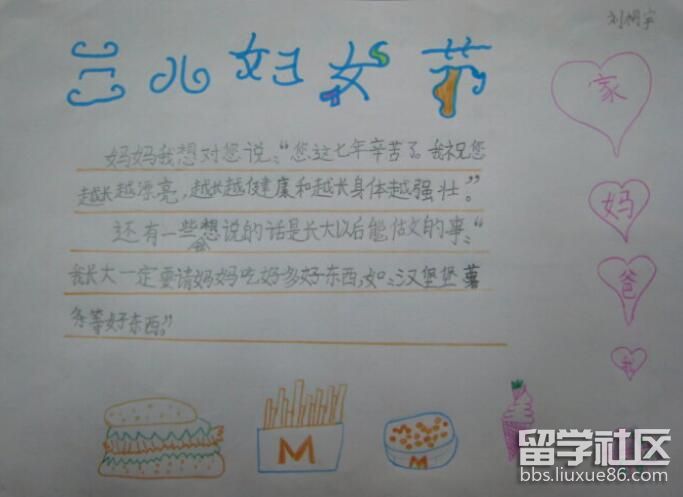 三八妇女节
家
妈妈我想对您说:“您这七年辛苦了。我祝您
越长越漂亮,越长越健康和越长身体越强壮。”
妈
还有一些想说的话是长大以后能做的事:“
会
爸
我长大一定要请妈妈吃好多好东西,如:汉堡堡薯
条等好东西。”
我
M
M
留学社区
bbs.liuxue86.com